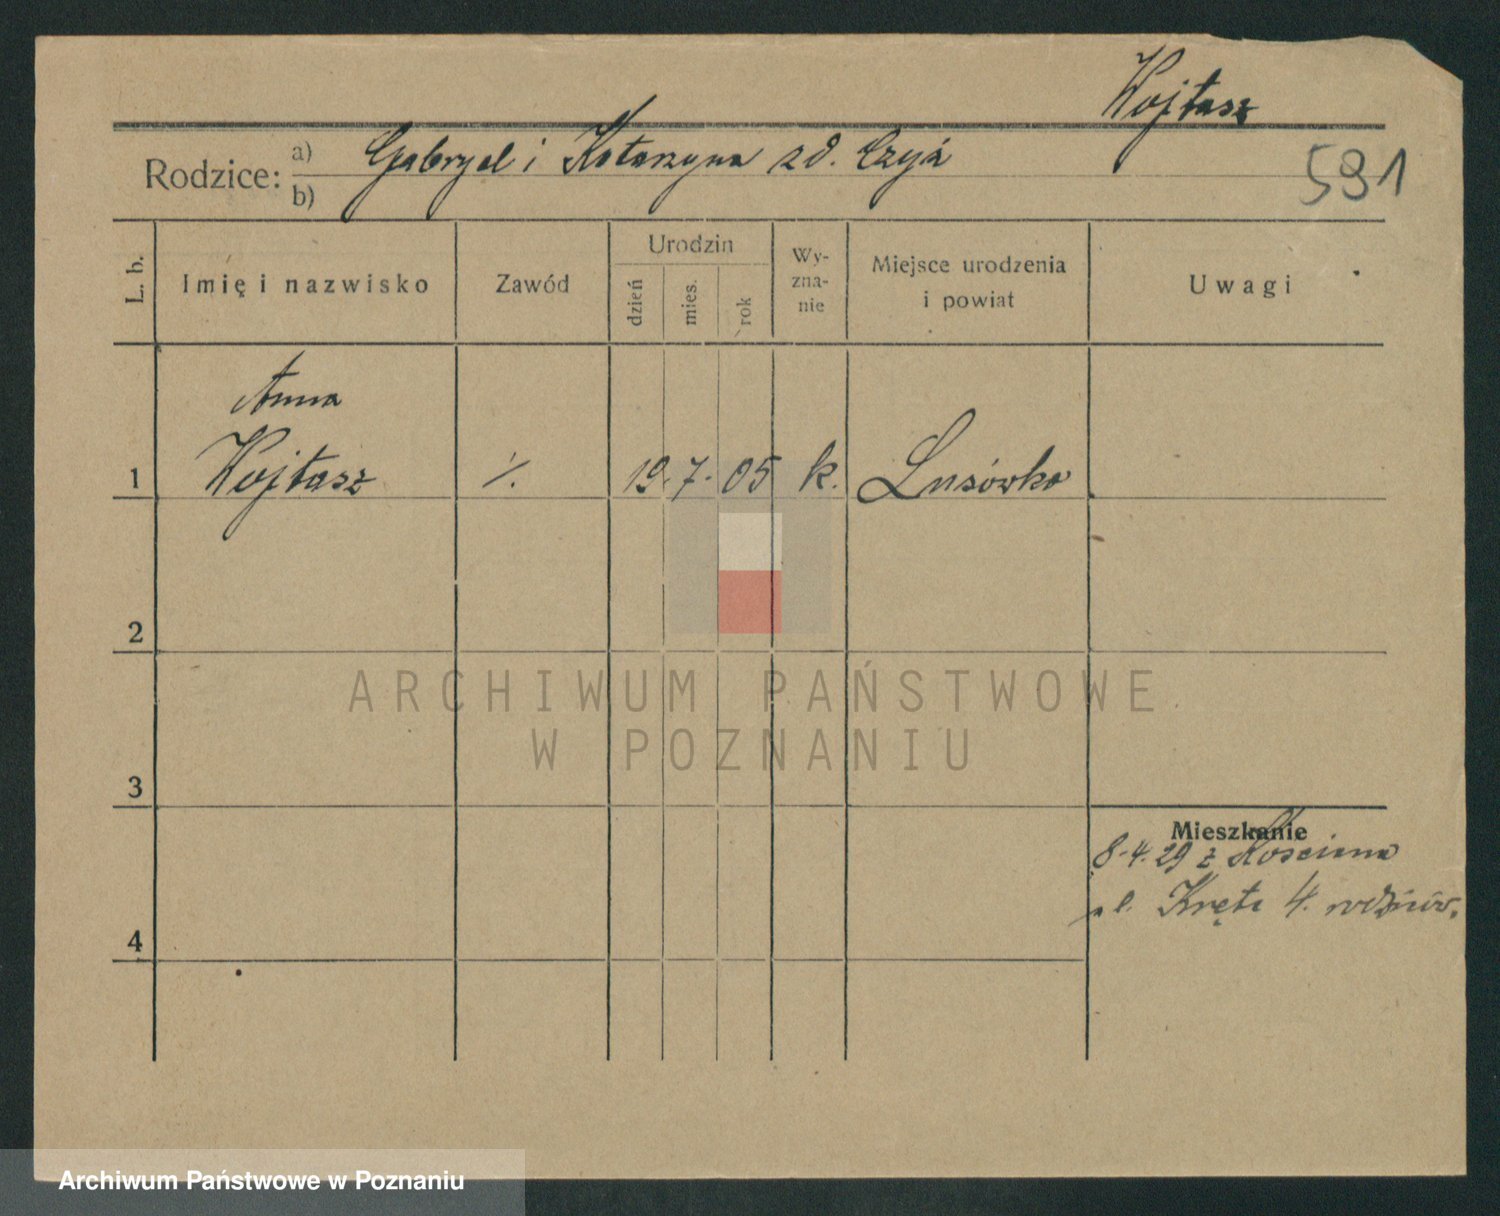 Wojtasz
Rodzice: a) Gabryel i Katarzyna zd. Czyż
b)
591
L. b.
Imię i nazwisko
Zawód
Urodzin
dzień
mies.
rok
Wy-
zna-
nie
Miejsce urodzenia
i powiat
Uwagi
Anna
1 Wojtasz ./. 19. 7. 05 k. Lusówko
2
ARCHIWUM PAŃSTWOWE
W POZNANIU
3
Mieszkanie
8.4.29 z Kościana
ul. Kręta 4.
4
Archiwum Państwowe w Poznaniu